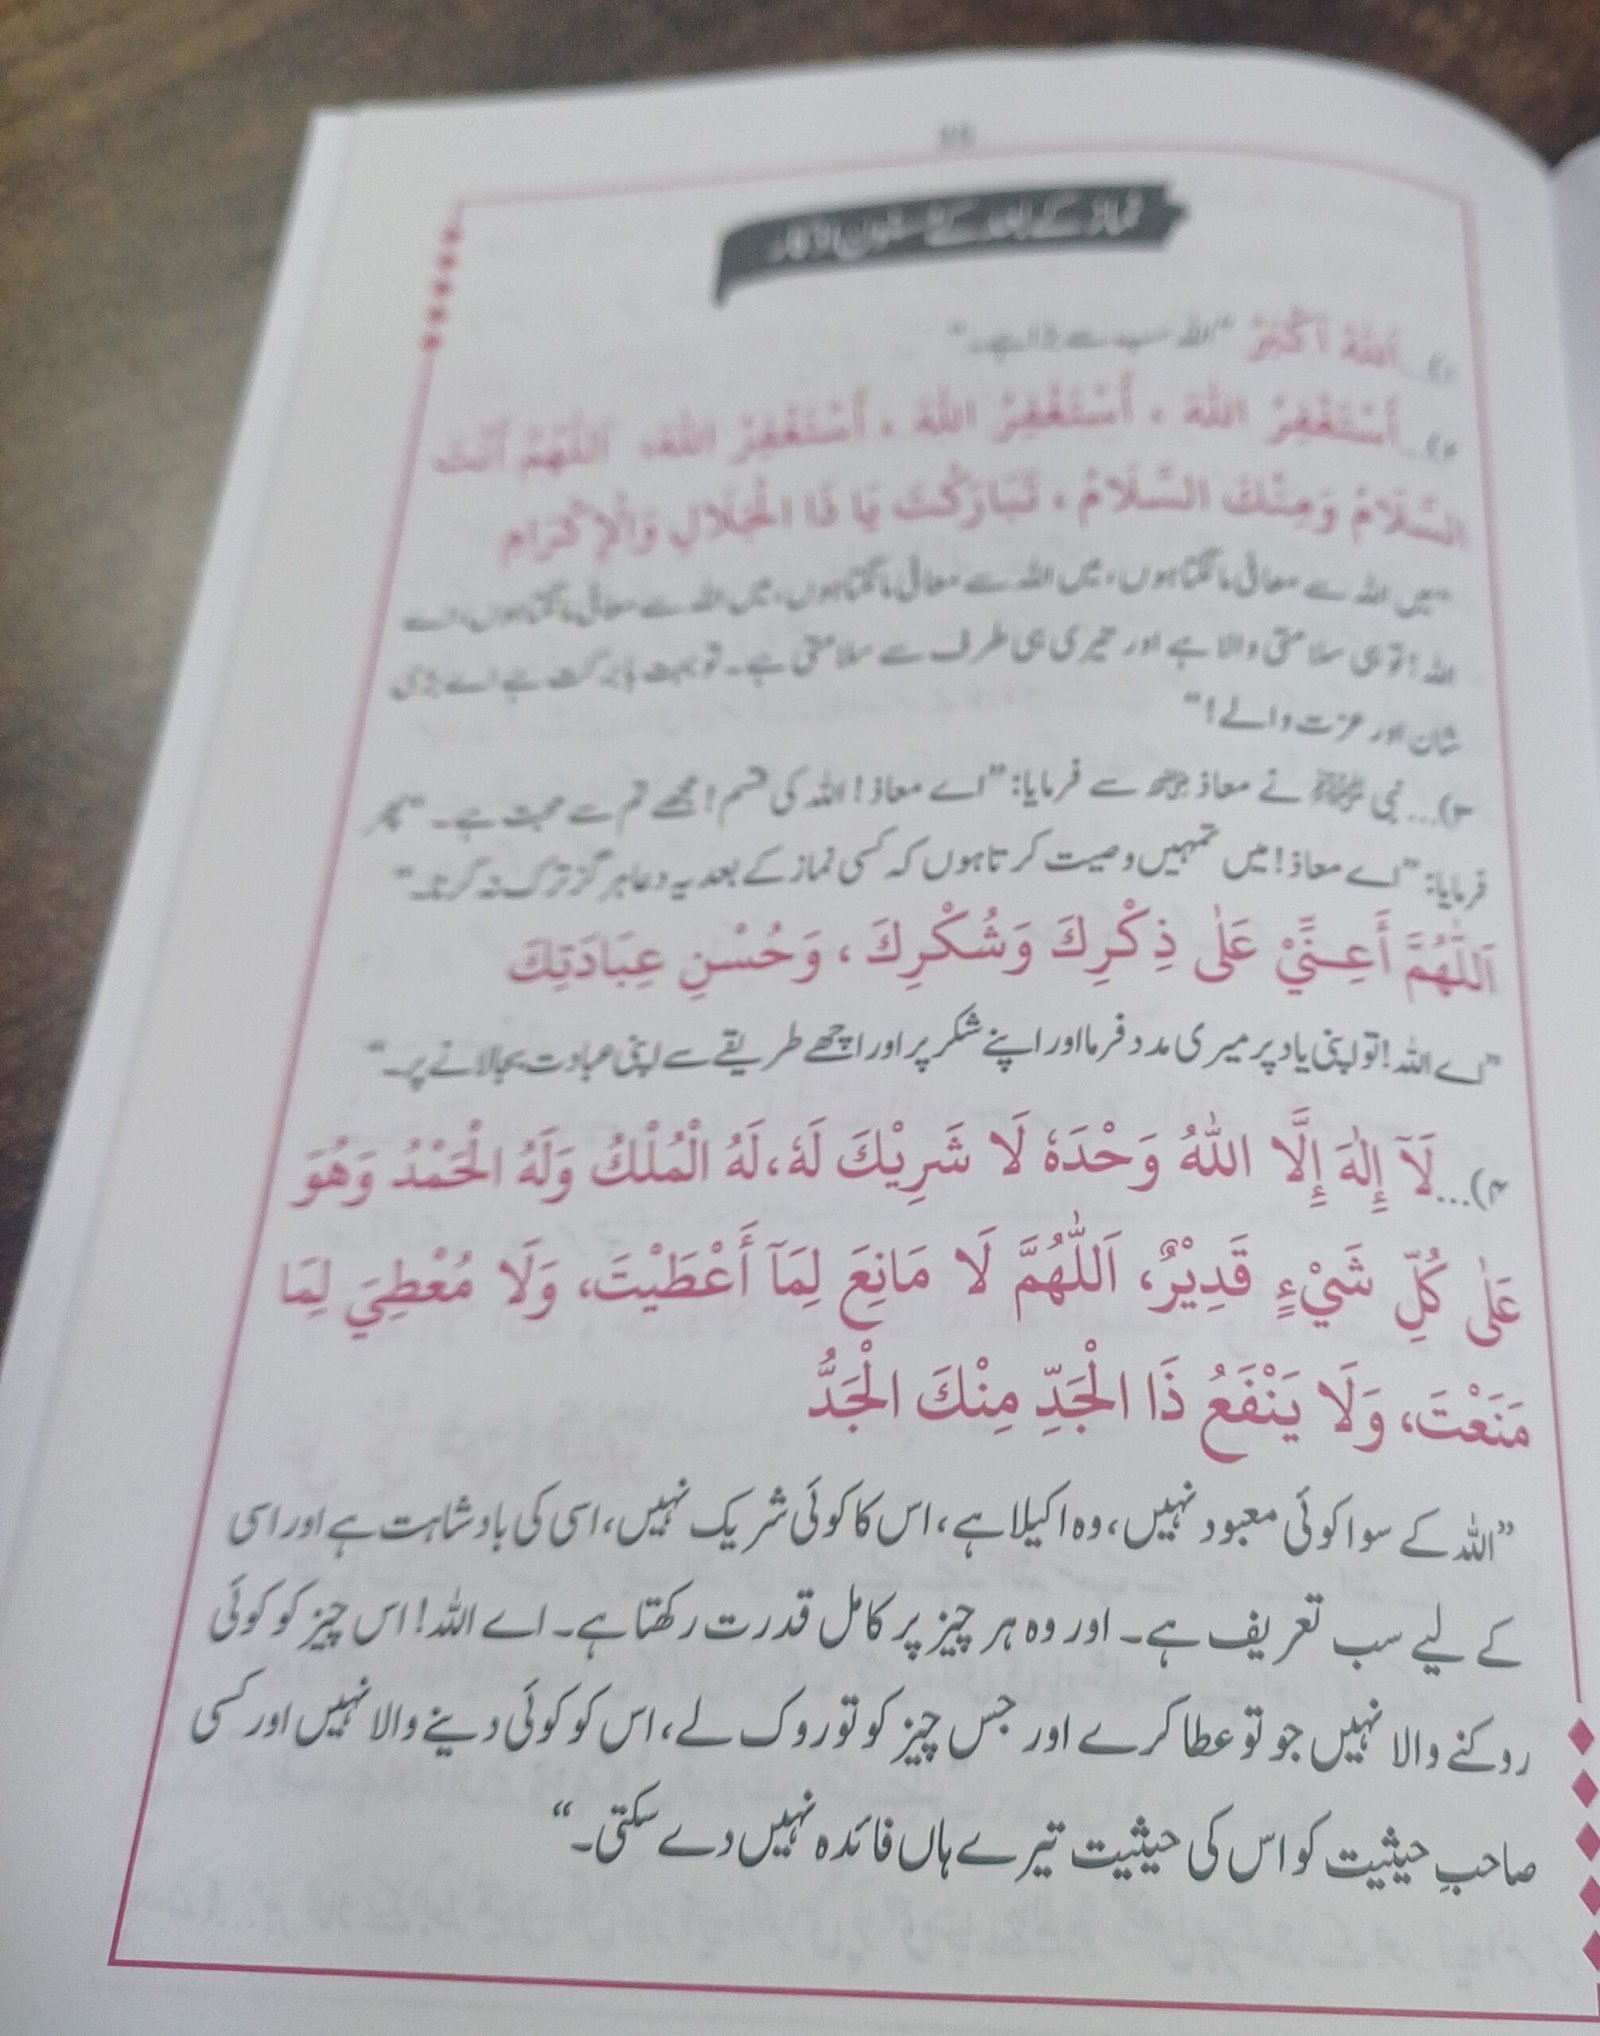 نماز کے بعد کے مسنون اذکار
۱)... اَللهُ أَكْبَرُ ”اللہ سب سے بڑا ہے۔“
۲)... أَسْتَغْفِرُ اللهَ ، أَسْتَغْفِرُ اللهَ ، أَسْتَغْفِرُ اللهَ، اَللّٰهُمَّ أَنْتَ
السَّلَامُ وَمِنْكَ السَّلَامُ ، تَبَارَكْتَ يَا ذَا الْجَلَالِ وَالْإِكْرَامِ
”میں اللہ سے معافی مانگتا ہوں، میں اللہ سے معافی مانگتا ہوں، میں اللہ سے معافی مانگتا ہوں، اے
اللہ! تو ہی سلامتی والا ہے اور تیری ہی طرف سے سلامتی ہے۔ تو بہت بابرکت ہے اے بڑی
شان اور عزت والے!“
۳)... نبی ﷺ نے معاذ رضی اللہ عنہ سے فرمایا: ”اے معاذ! اللہ کی قسم! مجھے تم سے محبت ہے۔“ پھر
فرمایا: ”اے معاذ! میں تمہیں وصیت کرتا ہوں کہ کسی نماز کے بعد یہ دعا ہرگز ترک نہ کرنا۔“
اَللّٰهُمَّ أَعِنِّيْ عَلٰى ذِكْرِكَ وَشُكْرِكَ ، وَحُسْنِ عِبَادَتِكَ
”اے اللہ! تو اپنی یاد پر میری مدد فرما اور اپنے شکر پر اور اچھے طریقے سے اپنی عبادت بجالانے پر۔“
۴)... لَآ إِلٰهَ إِلَّا اللهُ وَحْدَهٗ لَا شَرِيْكَ لَهٗ، لَهُ الْمُلْكُ وَلَهُ الْحَمْدُ وَهُوَ
عَلٰى كُلِّ شَيْءٍ قَدِيْرٌ، اَللّٰهُمَّ لَا مَانِعَ لِمَآ أَعْطَيْتَ، وَلَا مُعْطِيَ لِمَا
مَنَعْتَ، وَلَا يَنْفَعُ ذَا الْجَدِّ مِنْكَ الْجَدُّ
”اللہ کے سوا کوئی معبود نہیں، وہ اکیلا ہے، اس کا کوئی شریک نہیں، اسی کی بادشاہت ہے اور اسی
کے لیے سب تعریف ہے۔ اور وہ ہر چیز پر کامل قدرت رکھتا ہے۔ اے اللہ! اس چیز کو کوئی
روکنے والا نہیں جو تو عطا کرے اور جس چیز کو تو روک لے، اس کو کوئی دینے والا نہیں اور کسی
صاحبِ حیثیت کو اس کی حیثیت تیرے ہاں فائدہ نہیں دے سکتی۔“